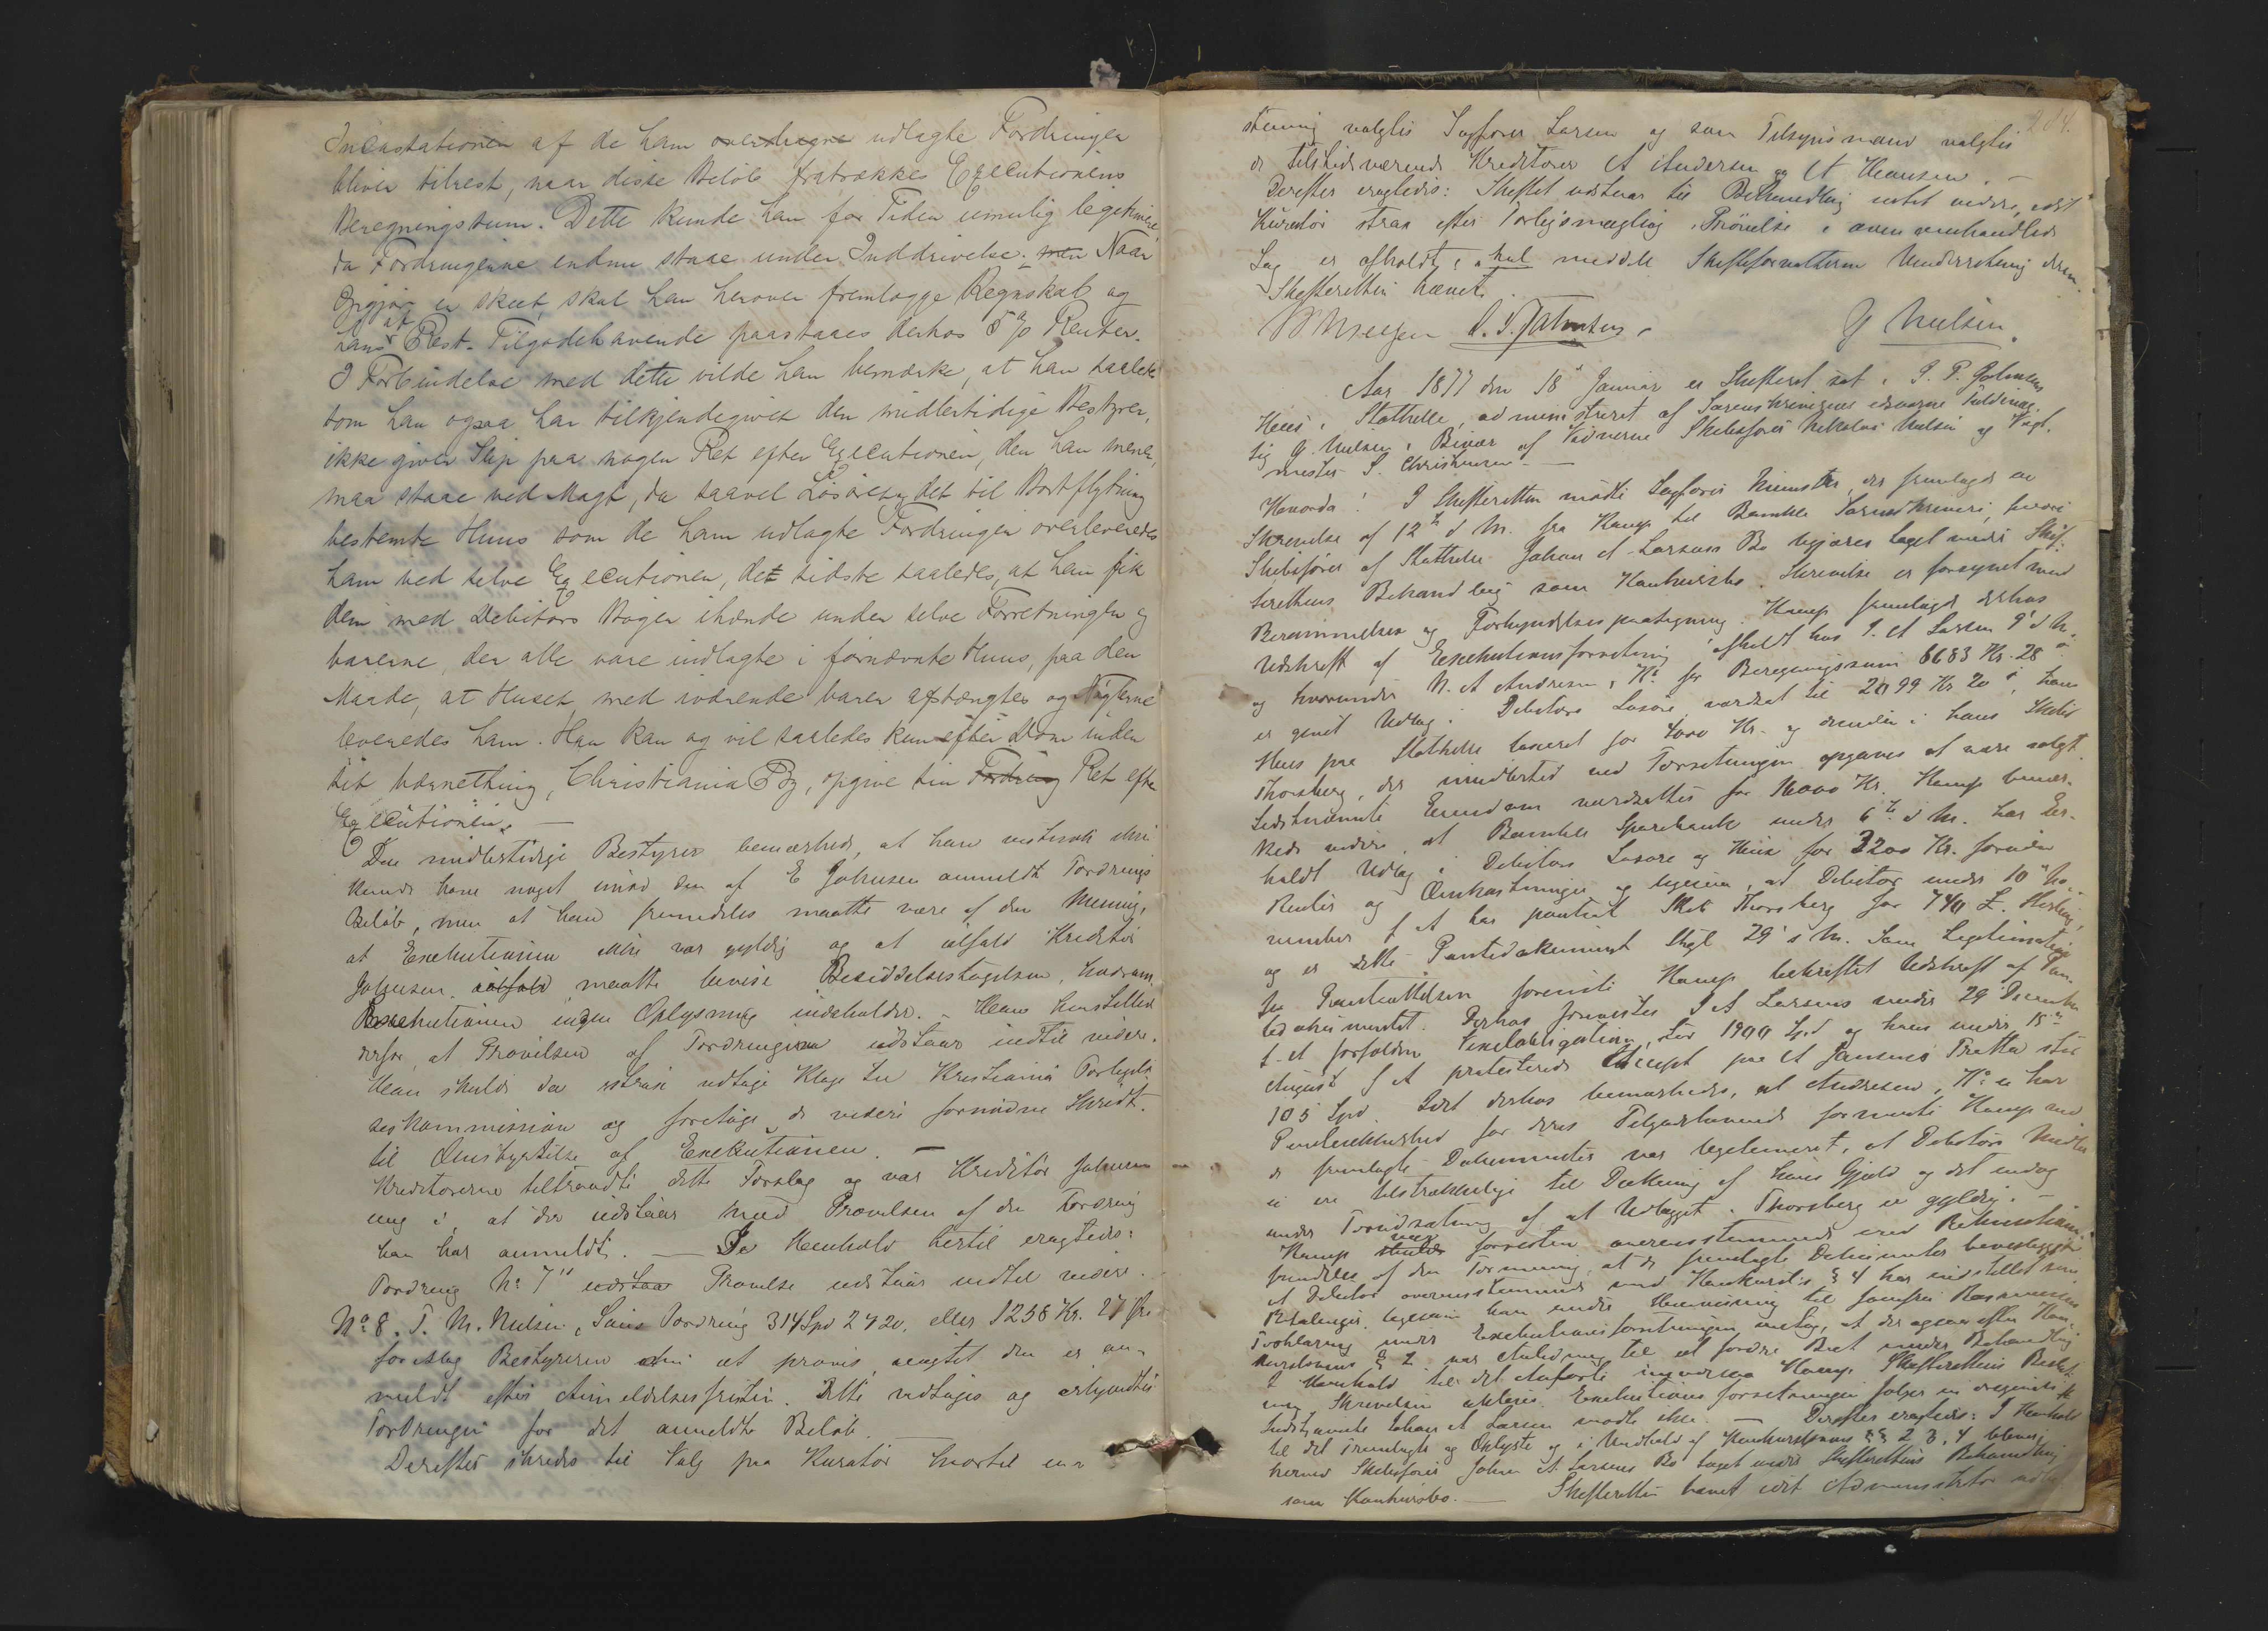 Incastationen af de ham overdragne udlagte Fordringer
bliver tilrest, naar disse Beløb fratrækkes Executionens
Beregningssum. Dette kunde han for Tiden umulig legitimere
da Fordringerne endnu staae under Inddrivelse. men Naar
Opgjør er skeet, skal han herover fremlægge Regnskab og
af
hans Rest-Tilgodehavende paastaaes derhos 5 % Renter.
I Forbindelse med dette vilde han bemærke, at han saaledes
som han ogsaa har tilkjendegivet den midlertidige Bestyrer,
ikke giver Slip paa nogen Ret efter Executionen, den han mener,
maa staae ved Magt, da saavel Løsøret og det til Bortflytning
bestemte Huus som de ham udlagte Fordringer overleveredes
ham ved selve Executionen, det sidste saaledes, at han fik
dem med Debitors Bøger ihænde under selve Forretningen og
varerne, der alle vare indlagte i førnævnte Huus, paa den
Maade, at Huset med ivärende varer afstængtes og Nøglerne
leveredes ham. Han kan og vil saaledes kun efter Dom inden
sit Værnething, Christiania By, opgive sin Fordring Ret efter
Executionen. —
Den midlertidige Bestyrer bemærkede, at han vistnok ikke
kunde have noget imod den af E Johnsen anmeldte Fordrings
Beløb, men at han fremdeles maatte være af den Mening,
at Executionen ikke var gyldig og at ialfald Kreditor
Johnsen ialfald maatte bevise Besiddelsestagelsen, hvorom
Exekutionen ingen Oplysning indeholder. - Han henstillede
derfor, at Prøvelsen af Fordringen udstaar indtil videre.
Han skulde da strax udtage Klage til Kristiania Forligelses
kommission og foretage de videre fornødne Skridt
til Omstyrtelse af Exekutionen. —
Kreditorerne tiltraadte dette Forslag og var Kreditor Johnsen
enig i, at der udstaar med Prøvelsen af den Fordring
han har anmeldt. — I Henhold hertil eragtedes:
Fordring No 7 udstaa Prøvelse udstaar indtil videre.
No 8. T. M. Nielsen, Sans Fordring 314 Spd 2 4 20. eller 1258 Kr. 27 Øre
foreslog Bestyreren at prøves uagtet den er an-
meldt efter Anmeldelsesfristen. Dette vedtages og erkjendtes
Fordringen for det anmeldte Beløb.
Derefter skredes til Valg paa Kurator hvortil en-
204.
stemmig valgtes Sagfører Larsen og som Tilsynsmænd valgtes
de tilstedeværende Kreditorer A Andersen og A Hansen. —
Derefter eragtedes: Skiftet udstaar til Behandling indtil videre, idet
Kurator strax efter Forligsmægling i Prøvelse i oven omhandlede
Sag er afholdt, skal meddele Skifteforvalteren Underretning derom.
Skifteretten hævet.
G Nielsen
Aar 1877 den 18de Januar er Skifteret sat i J. P. Johnsens
Huus i Stathelle, administreret af Sorenskriverens edsvorne Fuldmæg-
tig G. Nielsen i Bivær af Vidnerne Skibsfører Nikolai Nielsen og Vagt-
mester S. Christensen. —
Hvorda! I Skifteretten mødte Sagfører Kamp, der fremlagde en
Skrivelse af 12te d M. fra Kamp til Bamble Sorenskriveri, hvori
Skibsfører af Stathelle Johan A Larsens Bo begjæres taget under Skif-
terettens Behandling som Konkursbo. Skrivelse er forsynet med
Berammelses og Forkyndelsespaategning. Kamp fremlagde derhos
Udskrift af Exekutionsforretning afholdt hos J. A Larsen 9de d M.
og hvorunder N. A Andresen & Ko for Beregningssum 6683 Kr. 28 ø
er givet Udlag i Debitors Løsøre værdsat til 2099 Kr 20 ø, hans
Huus paa Stathelle taxeret for 4000 Kr. og desuden i hans Skib
Thorsberg, der imidlertid ved Forretningen opgaves at være solgt.
Sidstnævnte Eiendom værdsattes for 16000 Kr. Kamp bemær-
kede videre, at Bamble Sparebank under 6te d M. har er-
holdt Udlag i Debitors Løsøre og Huus for 3200 Kr. foruden
Renter og Omkostninger og ligesom, at Debitor under 10de No-
vember f A har pantsat Skib Thorsberg for 740 £. Sterling,
og er dette Pantedokument thgl 29de s M. Som Legitimation
for Pantsættelsen foreviste Kamp bekræftet Udskrift af Pan-
tedokumentet. Derhos forevistes J A Larsens under 29 December
f. A forfaldne Vexelobligation, stor 1900 Spd og hans under 15de
August f A protesterede Accept paa A Jansens Tratta stor
105 Spd. Idet derhos bemærkedes, at Andresen & Ko ei har
Pantesikkerhed for deres Tilgodehavende formente Kamp ved
de fremlagte Dokumenter var legitimeret, at Debitors Midler
ei ere tilstrækkelige til Dækning af hans Gjæld og det endog
under Forudsætning af at Udlægget i Thorsberg er gyldig. —
Kamp var forresten overensstemmende med
fremdeles af den Formening, at de fremlagte Dokumenter
at Debitor overensstemmende med Konkurslov § 4 har indstillet sine
Betalinger, ligesom han under Henvisning til
Forklaring under Exekutionsforretningen antog, at der ogsaa efter Kon-
kurslovens § 2 var Anledning til at fordre Boet under Behandling
I Henhold til det Anførte Kamp Skifterettens Beslut-
ning Skrivelsen Exekutionsforretningen følger in originali
Sidstnævnte Johan A Larsen mødte ikke. — Derefter eragtedes: I Henhold
til det Fremlagte og Oplyste og i Medhold af Konkurslovens §§ 2 3, 4 bliver
herved Skibsfører Johan A. Larsens Bo taget under Skifterettens Behandling
som Konkursbo. — Skifteretten hævet idet Administrator